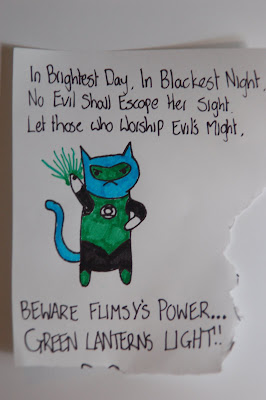 In Brightest Day, In Blackest Night,
No Evil Shall Escape Her Sight.
Let those who Worship Evil's Might,
BEWARE FLIMSY'S POWER...
GREEN LANTERNS LIGHT!!